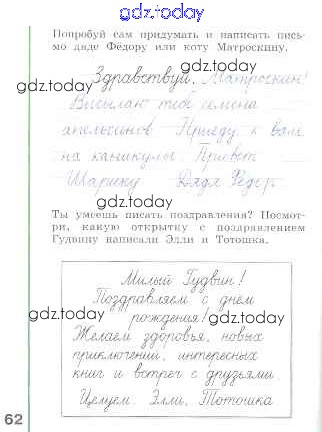 gdz.today
Попробуй сам придумать и написать пись-
мо дяде Фёдору или коту Матроскину.
gdz.today gdz.today
Здравствуй, Матроскин!
Высылаю тебе семена
апельсинов Приеду к вам
gdz.today gdz.today
на каникулы. Привет
Шарику Дядя Фёдор
gdz.today
Ты умеешь писать поздравления? Посмот-
ри, какую открытку с поздравлением
gdz.today gdz.today
Гудвину написали Элли и Тотошка.
Милый Гудвин!
Поздравляем с днём
gdz.today gdz.today
рождения!
Желаем здоровья, новых
приключений, интересных
книг и встреч с друзьями.
Целуем. Элли, Тотошка
62
gdz.today